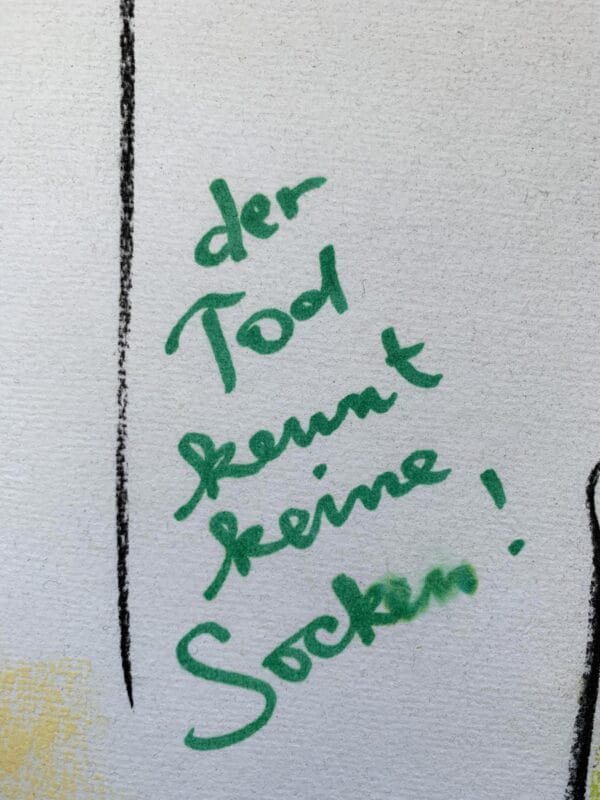 der
Tod
kennt
keine
Socken!